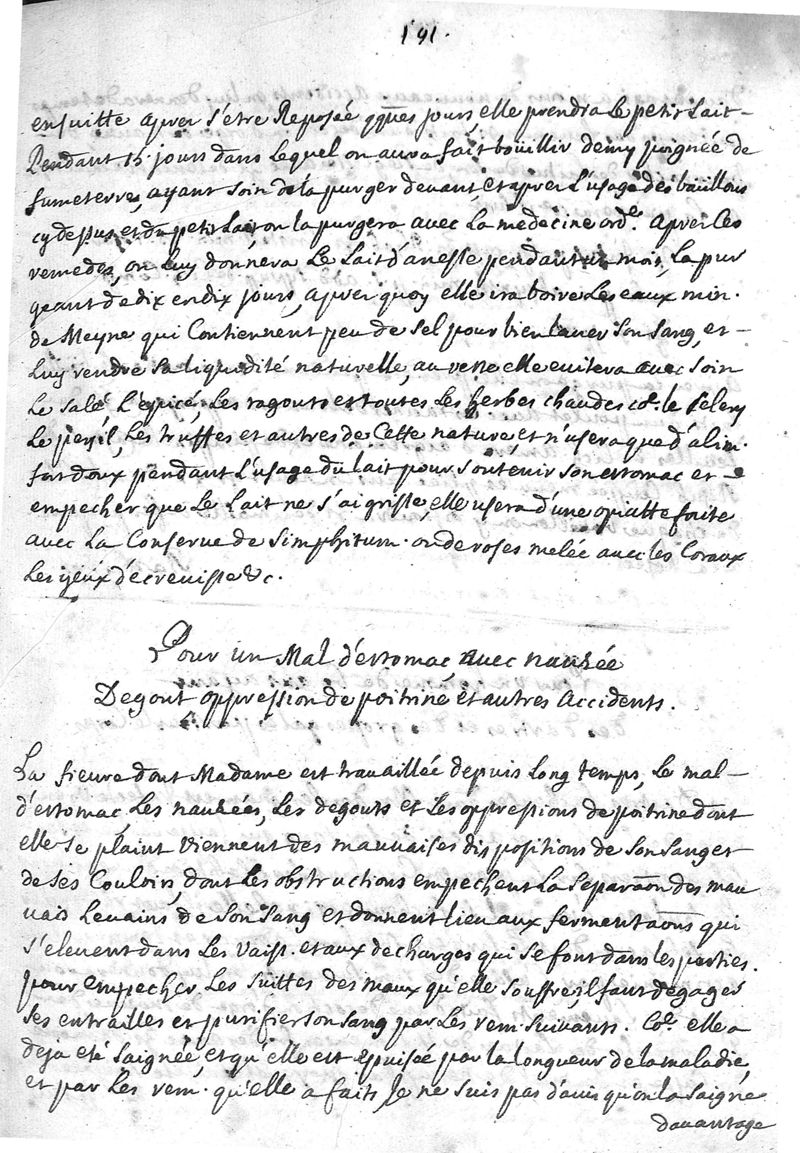 191.
ensuitte aprer s'etre Reposée qques jours, elle prendra le petit Lait-
Pendant 15. jours dans lequel on aura fait bouillir demy poignée de
fumeterre, ayant soin de la purger devant, et aprer L'usage des bouillons
cydepus et du petit Lait on la purgera avec La medecine ord.e aprer Ces
remedes, on Luy donnera Le Lait d'anesse pendant un mois, La pur
geant de dix en dix jours, aprer quoy elle ira boire Les eaux min.
de Meyne qui Contiennent peu de sel pour bien laver son sang, et-
Luy rendre sa liquidité naturelle, au reste elle evitera avec soin
Le salé L'epicé, Les ragouts et toutes Les herbes chaudes co.e le selery
Le persil, Les truffes et autres de Cette nature et n'usera que d'alim.
fort doux pendant L'usage du lait pour soutenir son estomac et -
empecher que Le Lait ne s'aigrisse, elle usera d'une opiatte faite
avec La Conserve de simphitum. ou de roses melée avec les Coraux
Les yeux d'ecrevisse &c.
Pour un Mal d'estomac, avec nausée
Degout oppression de poitrine et autres Accidents.
La fievre dont Madame est travaillée depuis Long temps, Le mal-
d'estomac, Les nausées, Les degouts et Les oppressions de poitrine dont
elle se plaint Viennent des mauvaises dispositions de son sang et
de ses Couloirs, dont Les obstructions empechent La separaon des mau
vais Levains de son sang et donnent lieu aux fermentaons qui
s'elevent dans Les vaiss. et aux decharges qui se font dans les parties.
pour empecher Les suittes des maux qu'elle souffre il faut degager
ses entrailles et purifier son sang par Les rem. suivants. Co.e elle a
deja eté saignée, et qu'elle est epuisée par la longueur de la maladie,
et par Les rem. qu'elle a faits, Je ne suis pas d'avis qu'on la saigne
davantage